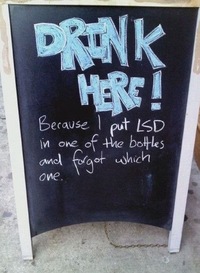 DRINK
HERE!
Because I put LSD
in one of the bottles
and forgot which
one.